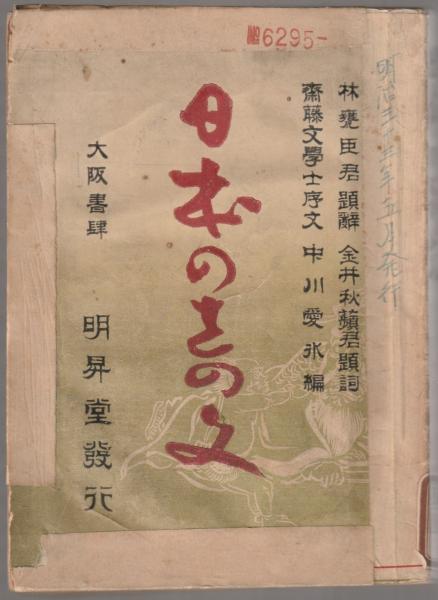 №6295-
明治三十三年五月発行
林甕臣君題辭 金井秋蘋君題詞
齋藤文學士序文 中川愛氷編
日本の の文
大阪書肆 明昇堂發行